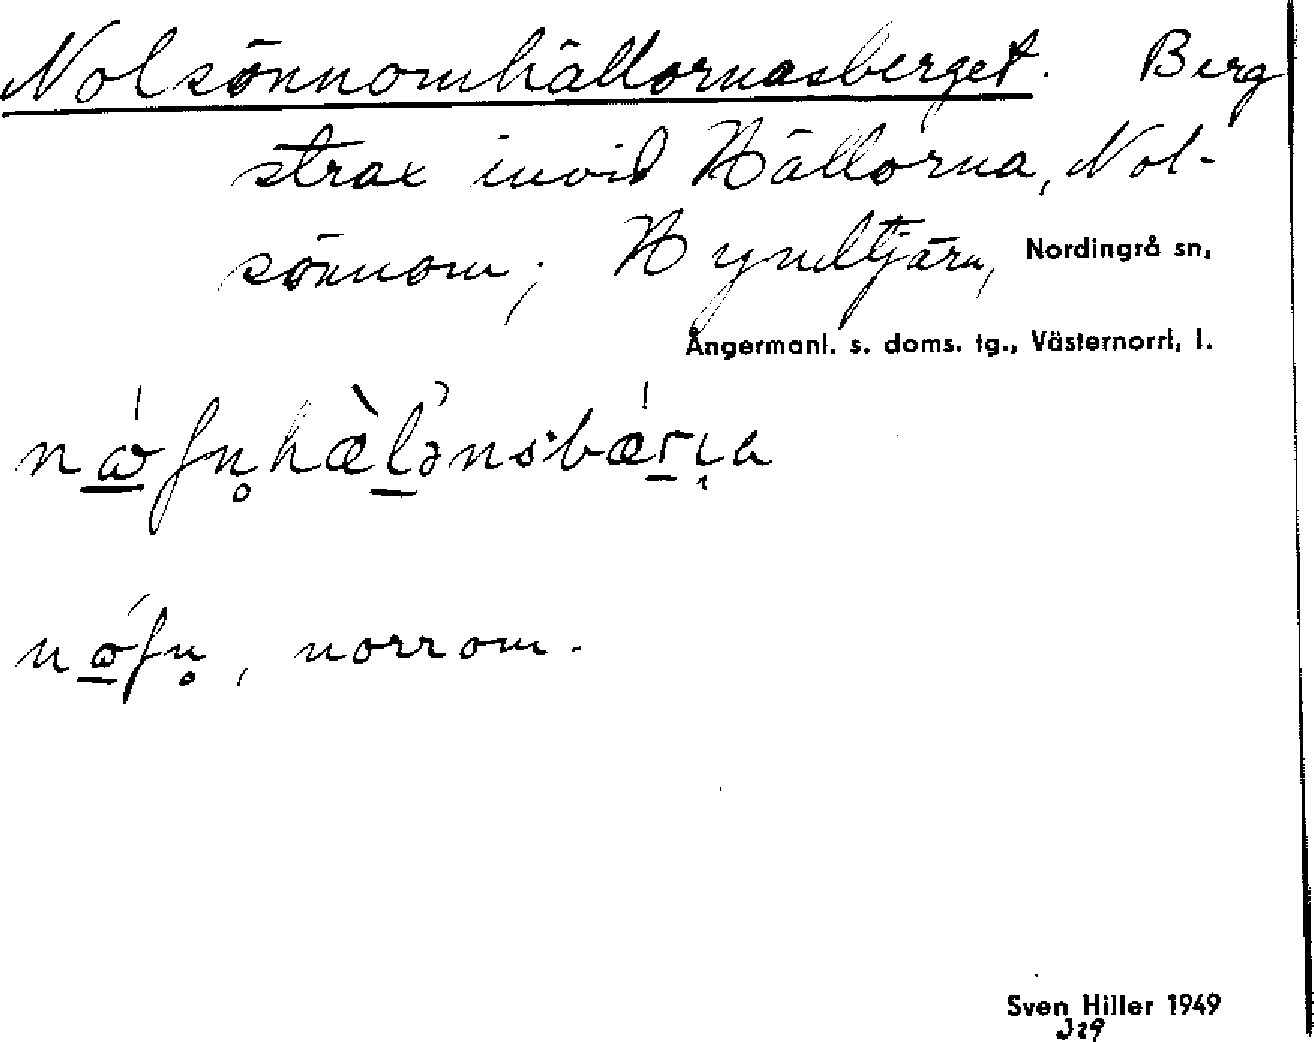 Nolsönnomhällornasberget. Berg
strax invid Hällorna, Nol-
sönnom; Hyndtjärn, Nordingrå sn,
Ångermanl. s. doms. tg., Västernorrl. l.
norrom.
Sven Hiller 1949
J29